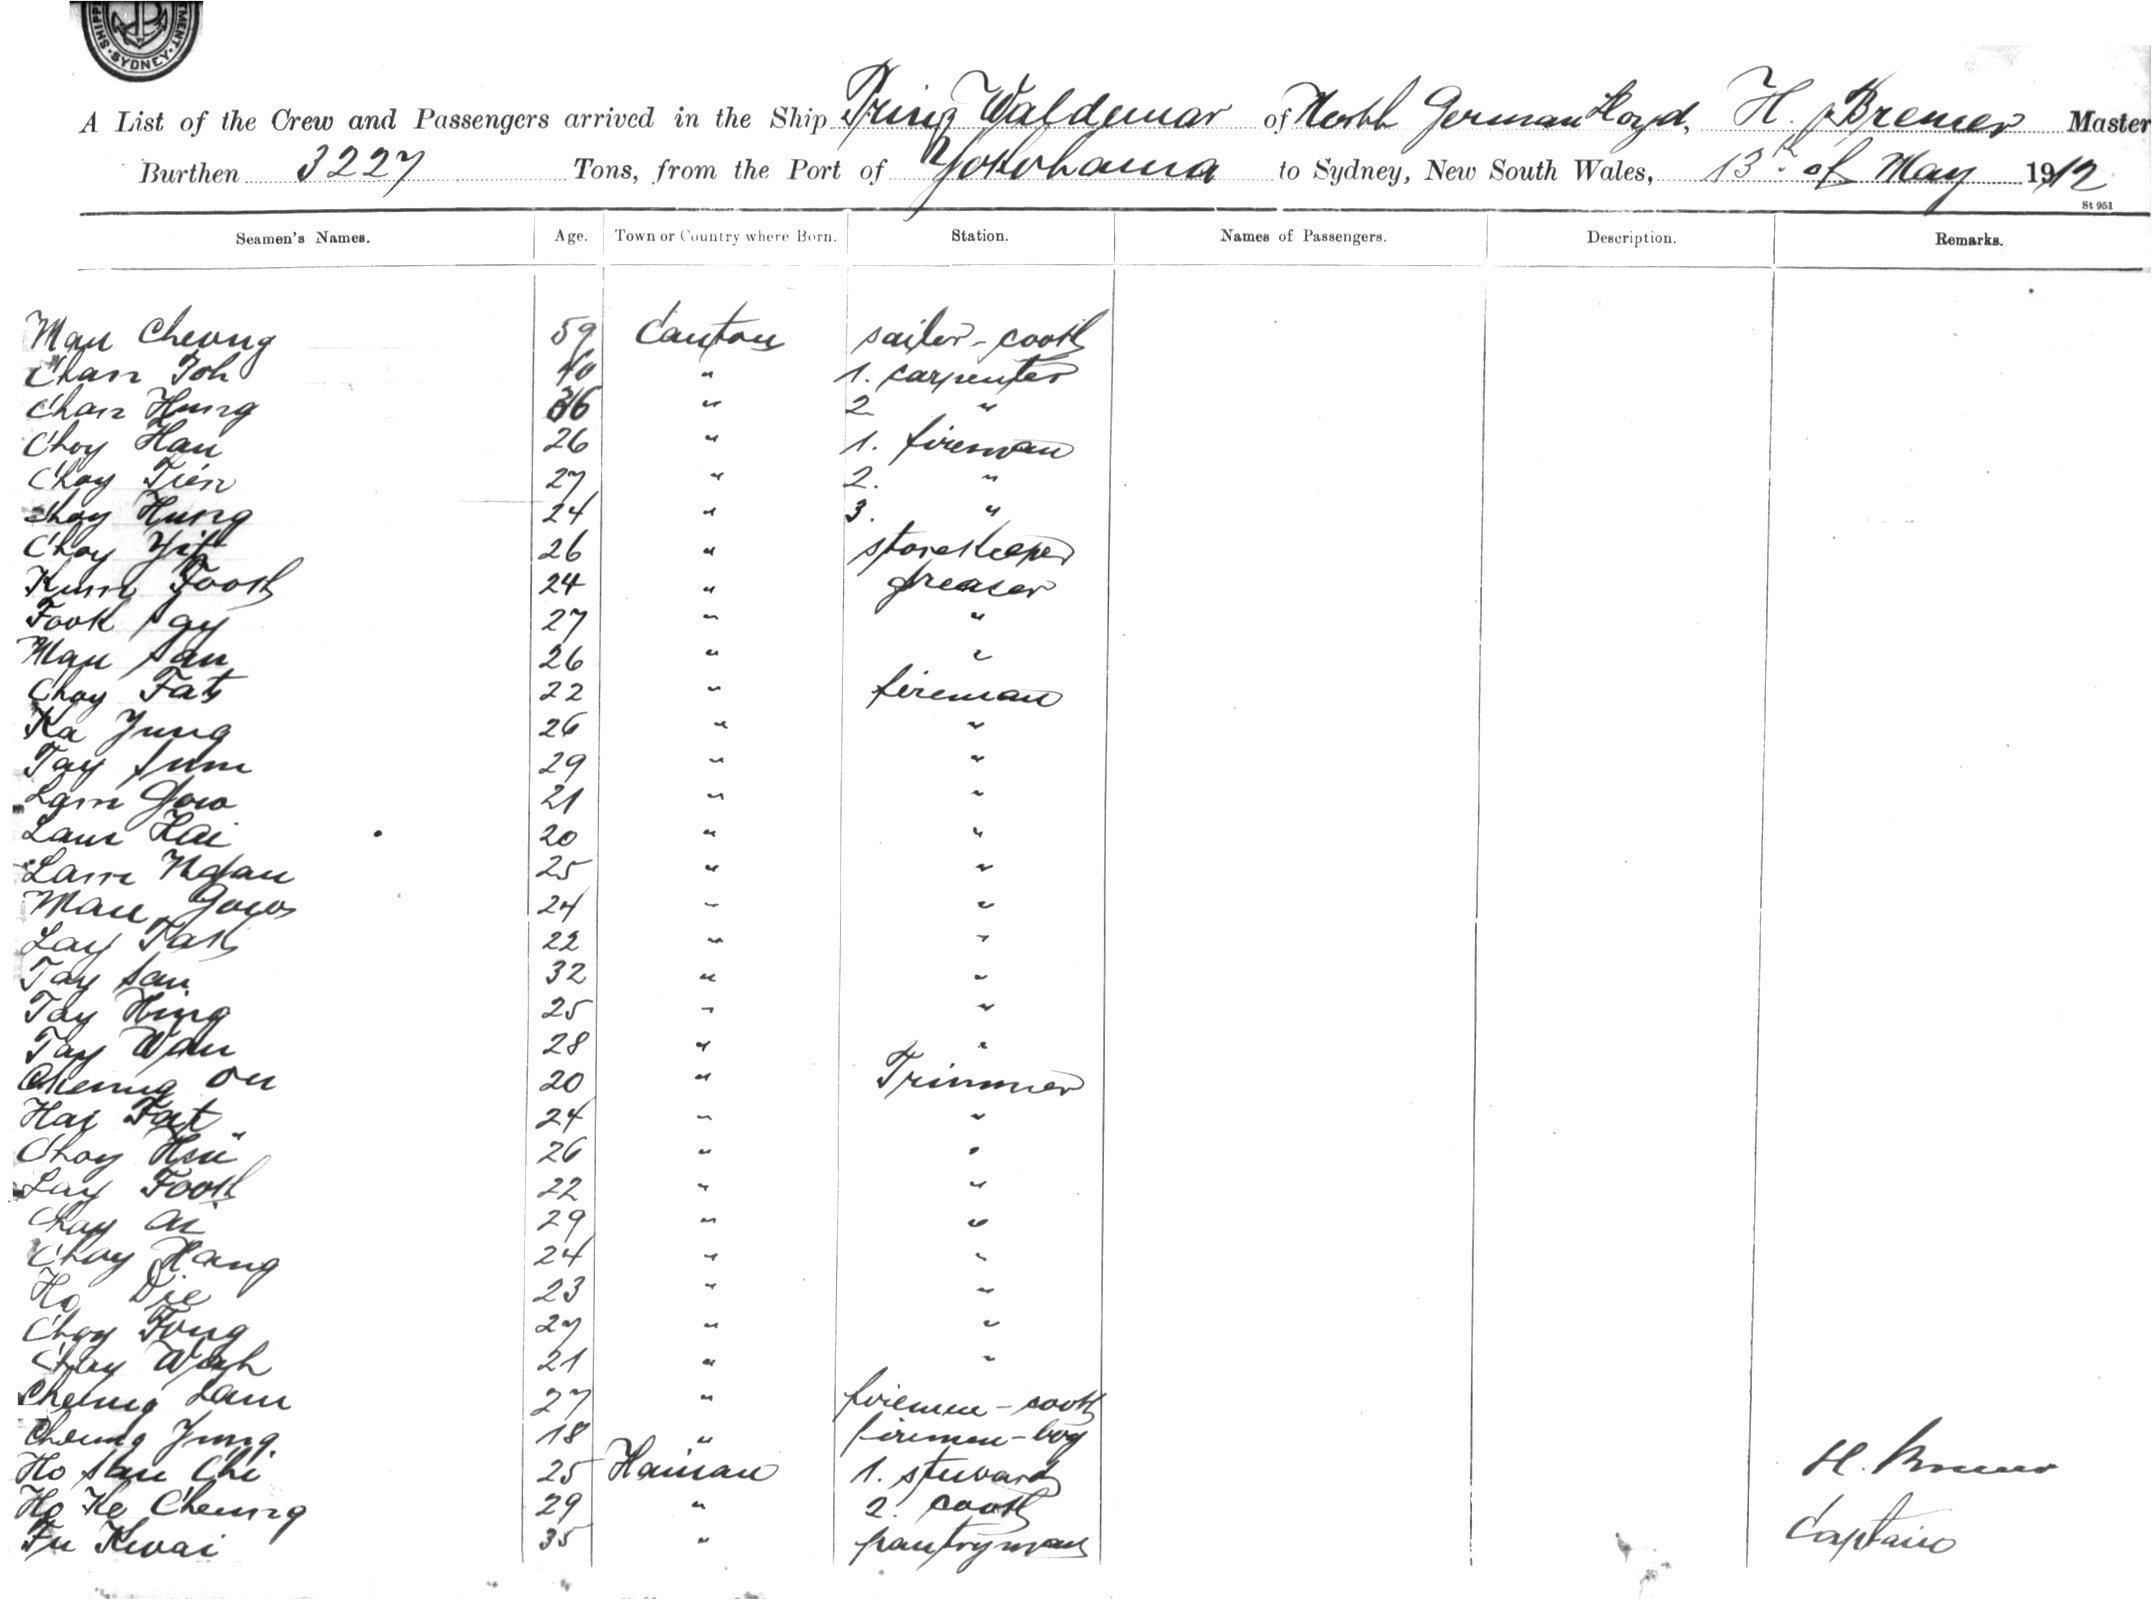 SHIPP TMENT. SYDNEY
A List of the Crew and Passengers arrived in the Ship Prinz Waldemar of North German Lloyd, H. Bremer Master
Burthen 3227 Tons, from the Port of Yokohama to Sydney, New South Wales, 13th of May 1912
St 951
Seamen's Names. Age. Town or Country where Born. Station. Names of Passengers. Description. Remarks.
Man Cheong 59 Canton sailor-cook
Chan Toh 40 " 1. carpenter
Chan Hung 36 " 2 "
Choy Han 26 " 1. fireman
Choy Tien 27 " 2. "
Choy Hung 24 " 3. "
Choy Yip 26 " storekeeper
Kum Fook 24 " greaser
Fook 27 " "
Man San 26 " "
Choy Fat 22 " fireman
Ka Yung 26 " "
Tay Sum 29 " "
Lam Gow 21 " "
Lam Kai 20 " "
Lam Ngan 25 " "
Man Gow 24 " "
Lay Tak 22 " "
Tay San 32 " "
Tay Hing 25 " "
Tay Wan 28 " "
Cheung On 20 " Trimmer
Hai Fat 24 " "
Choy Hsü 26 " "
Lay Fook 22 " "
Choy 29 " "
Choy Hang 24 " "
Ho Die 23 " "
Choy Fong 27 " "
Choy Wah 21 " "
Cheung Lam 27 " firemen-cook
Cheung Yung 18 " firemen-boy
Ho San Chi 25 Hainan 1. steward H. Bremer
Ho Ke Cheung 29 " 2. cook
Fu Kwai 35 " pantryman Captain